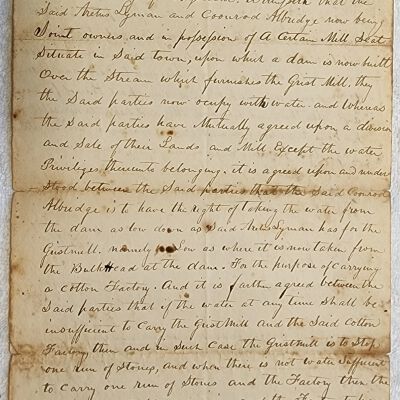 Said Artus Lyman and Coonrod Albridge now being
Joint owners and in possession of A Certain Mill Seat
Situate in Said town, upon whit a dam is now built
Over the Stream whit furnishes the Grist Mill, they
the Said parties now occupy with water and Whereas
the Said parties have Mutually agreed upon a division
and Sale of their Lands and Mill Except the water
Privileges thereunto belonging, it is agreed upon and under
Stood between the Said parties that the Said Coonrod
Albridge is to have the right of taking the water from
the dam as low down as Said Artus Lyman has for the
Gristmill. namely as Low as where it is now taken from
the Bulkhead at the dam. For the purpose of carrying
a Cotton Factory. And it is farther agreed between the
Said parties that if the water at any time Shall be
insufficient to Carry the Grist Mill and the Said Cotton
Factory then and in Such Case the Gristmill is to Stop
one run of Stones, and when there is not water Sufficient
to Carry one run of Stones and the Factory then the